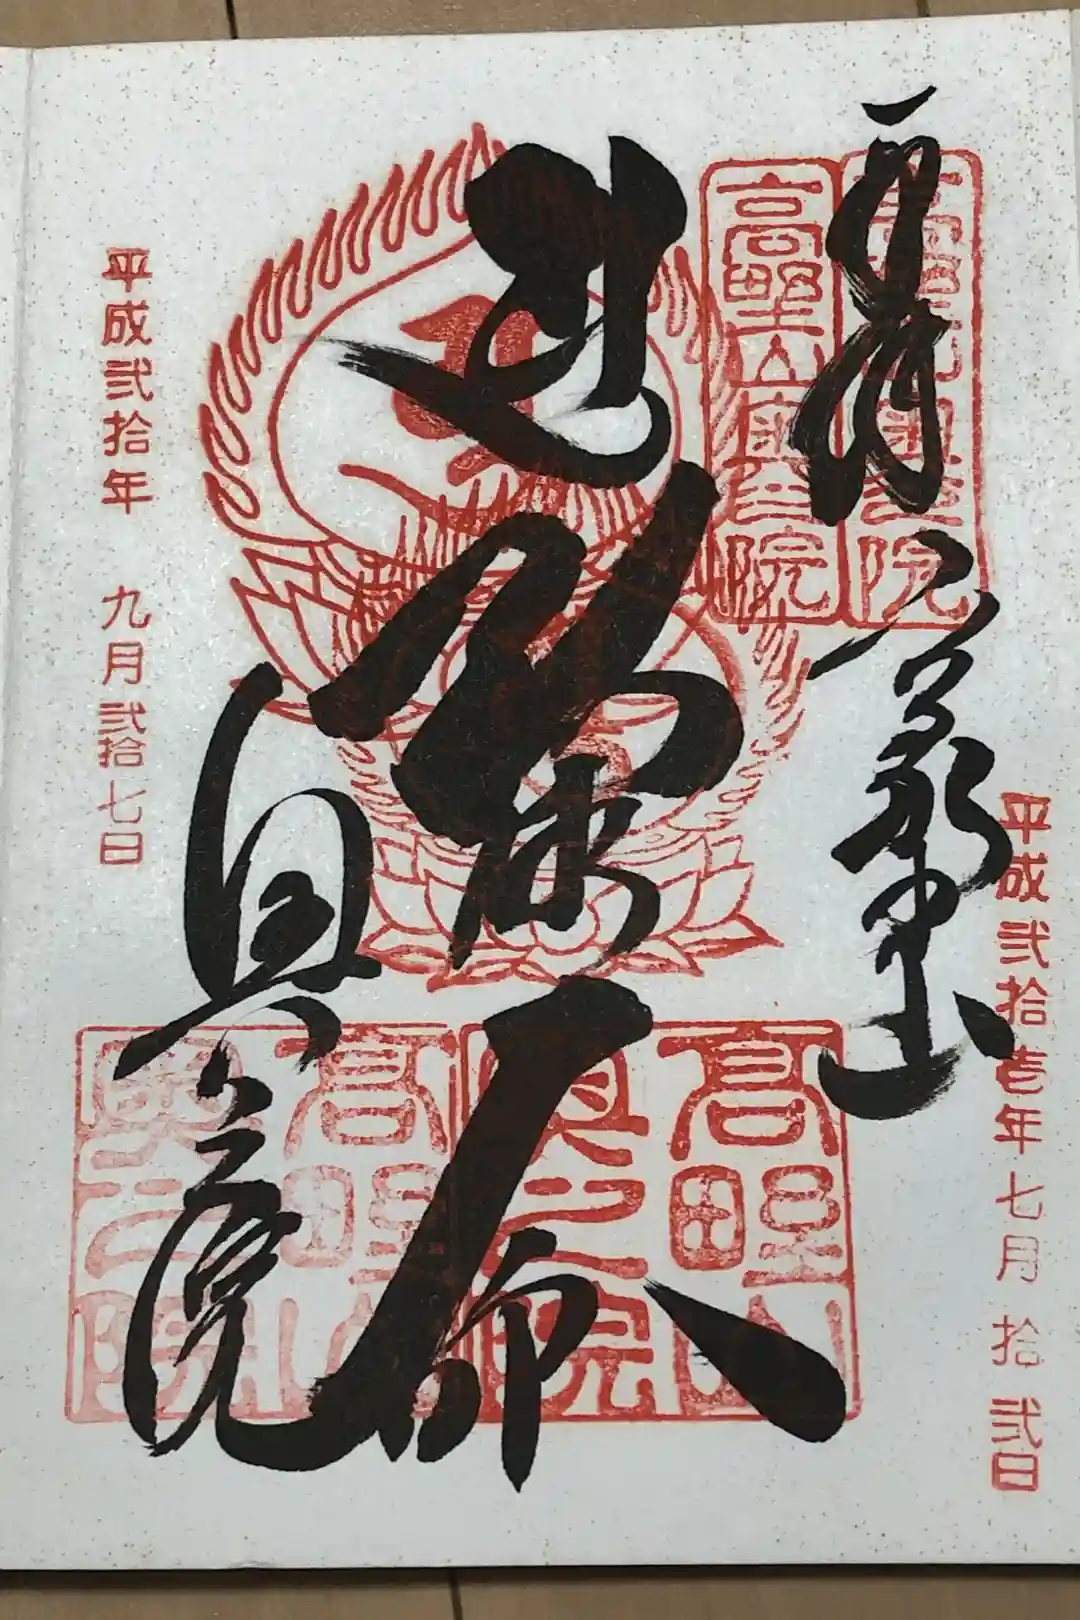 平成弐拾壱年七月拾弐日
高野山奥之院
高野山奥之院
弘法大師
奥之院
高野山奥之院
高野山奥之院
平成弐拾年 九月弐拾七日